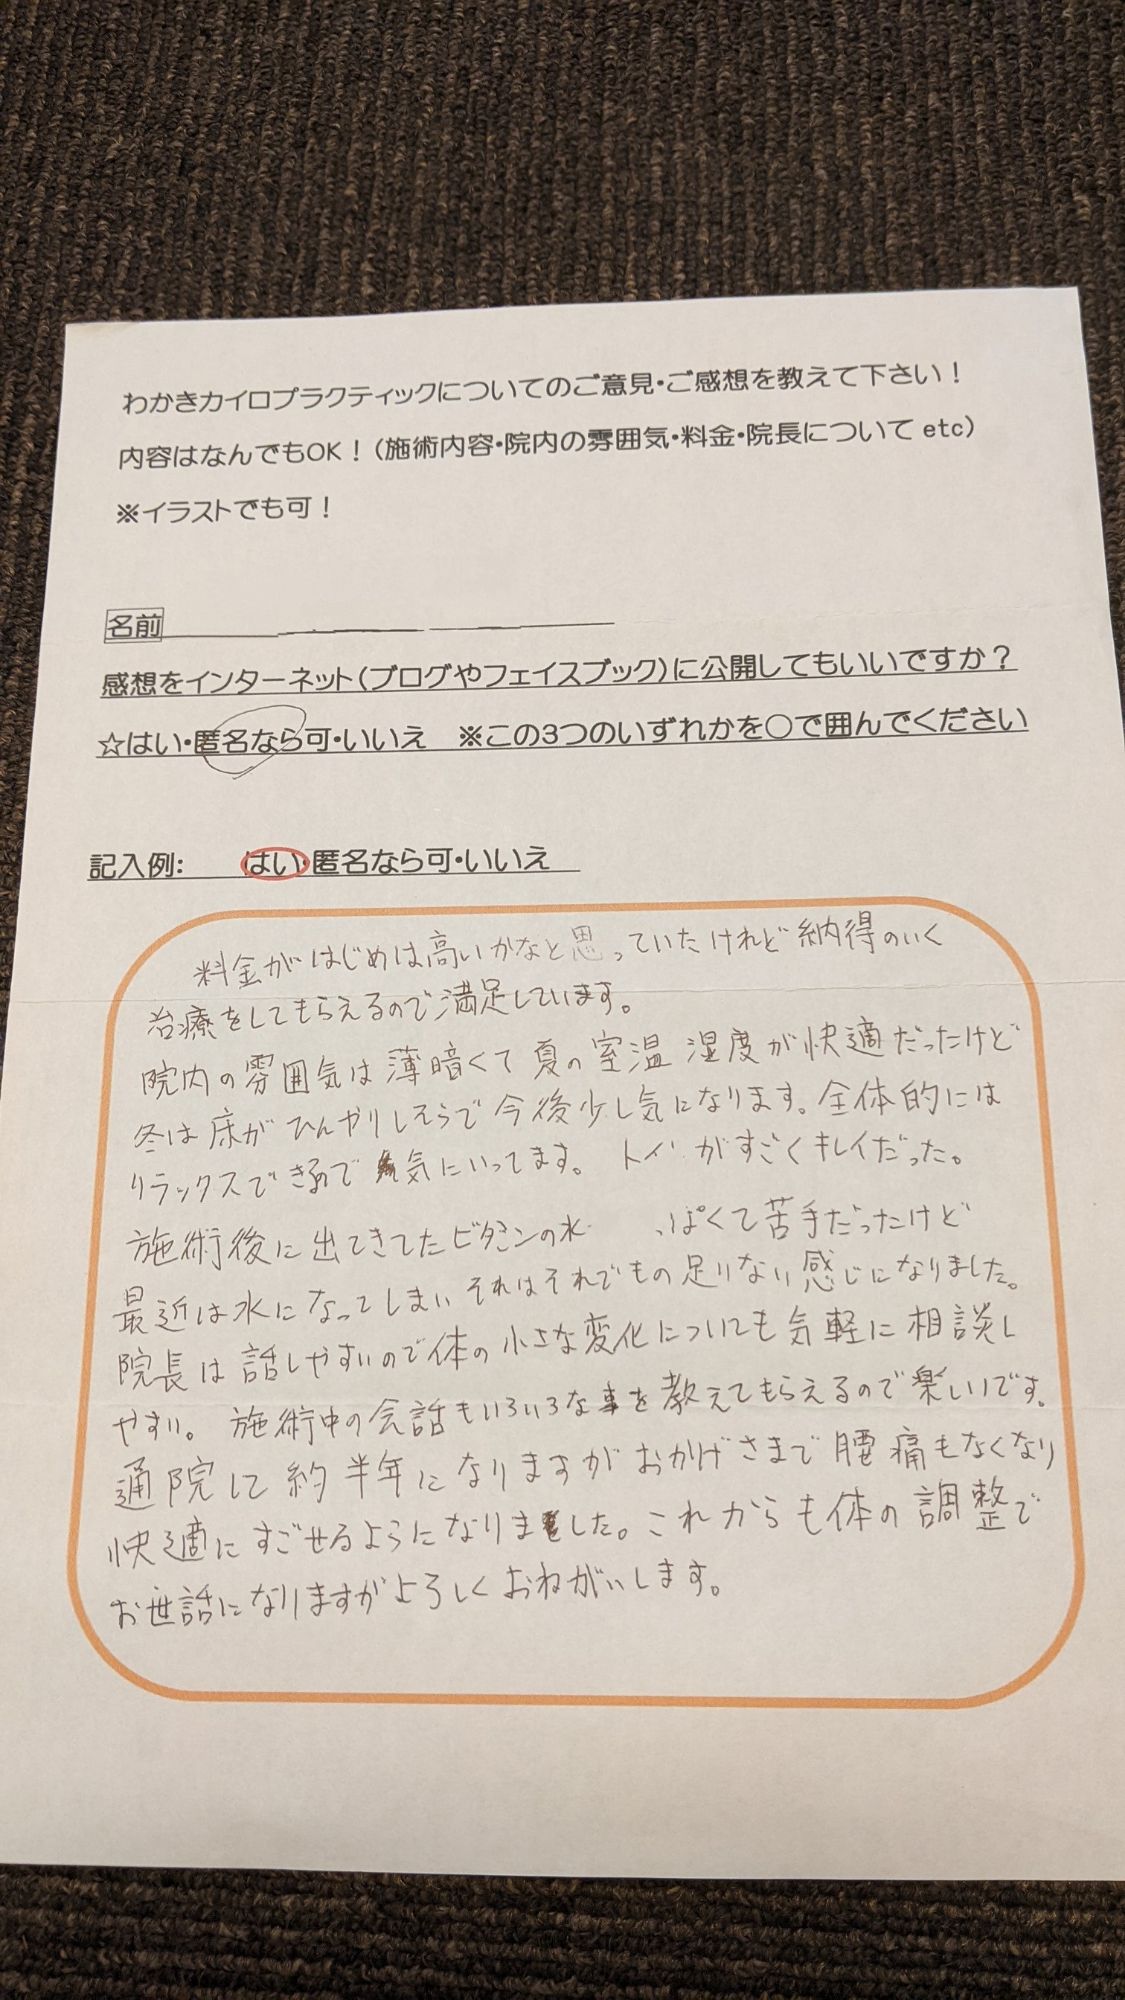 わかきカイロプラクティックについてのご意見・ご感想を教えて下さい！
内容はなんでもOK！（施術内容・院内の雰囲気・料金・院長について etc）
※イラストでも可！
名前
感想をインターネット（ブログやフェイスブック）に公開してもいいですか？
☆はい・匿名なら可・いいえ　※この3つのいずれかを○で囲んでください
記入例:　はい・匿名なら可・いいえ
料金がはじめは高いかなと思っていたけれど納得のいく
治療をしてもらえるので満足しています。
院内の雰囲気は薄暗くて夏の室温 湿度が快適だったけど
冬は床がひんやりしそうで今後少し気になります。全体的には
リラックスできるので気にいってます。 トイ がすごくキレイだった。
施術後に出てきてたビタミンの水 っぽくて苦手だったけど
最近は水になってしまいそれはそれでもの足りない感じになりました。
院長は話しやすいので体の小さな変化についても気軽に相談し
やすい。施術中の会話もいろいろな事を教えてもらえるので楽しいです。
通院して約半年になりますがおかげさまで腰痛もなくなり
快適にすごせるようになりました。これからも体の調整で
お世話になりますがよろしくおねがいします。